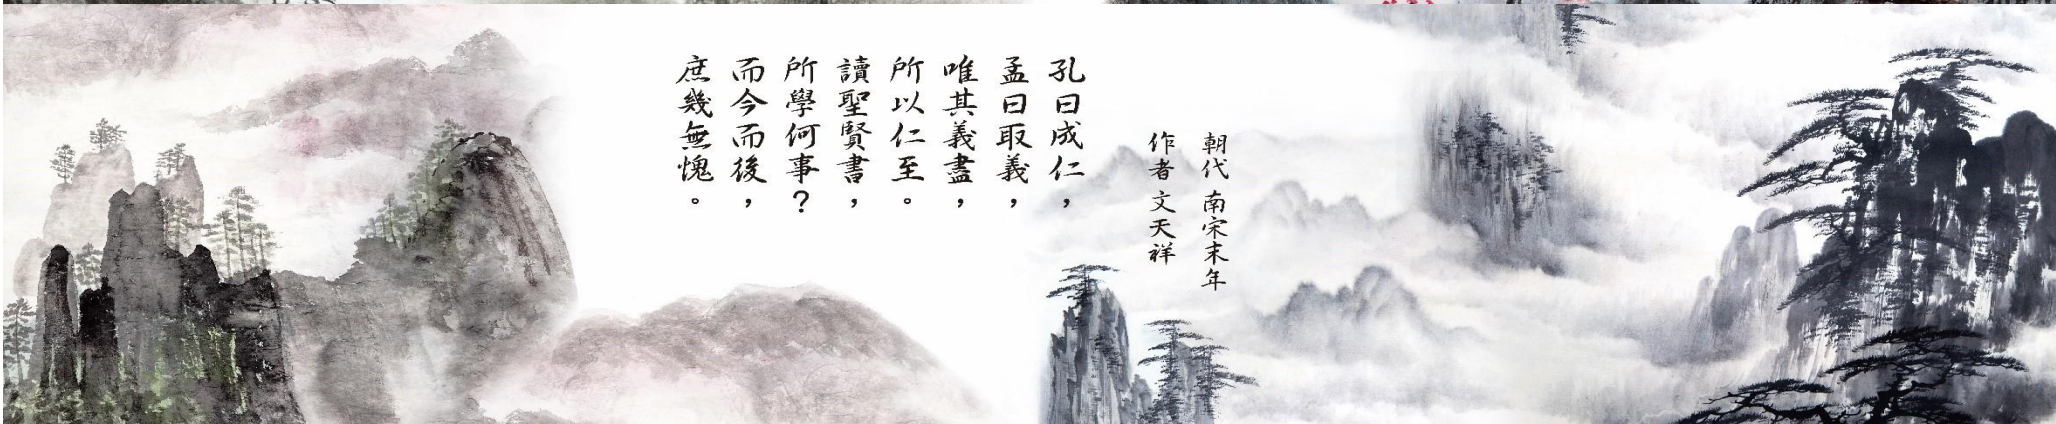 朝代 南宋末年
作者 文天祥
孔曰成仁，
孟曰取義，
唯其義盡，
所以仁至。
讀聖賢書，
所學何事？
而今而後，
庶幾無愧。